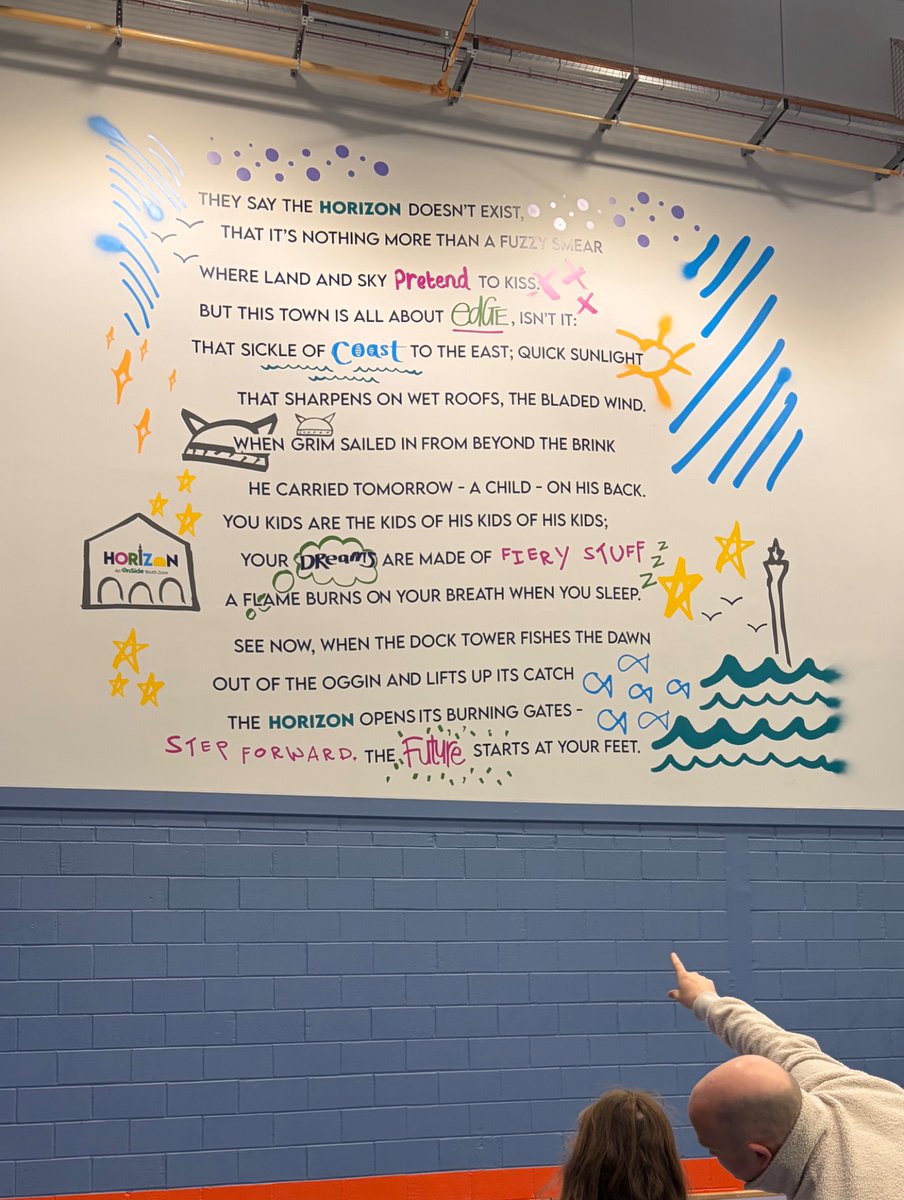 THEY SAY THE HORIZON DOESN'T EXIST,
THAT IT'S NOTHING MORE THAN A FUZZY SMEAR
WHERE LAND AND SKY Pretend TO KISS.
BUT THIS TOWN IS ALL ABOUT edGE, ISN'T IT:
THAT SICKLE OF Coast TO THE EAST; QUICK SUNLIGHT
THAT SHARPENS ON WET ROOFS, THE BLADED WIND.
WHEN GRIM SAILED IN FROM BEYOND THE BRINK
HE CARRIED TOMORROW - A CHILD - ON HIS BACK.
YOU KIDS ARE THE KIDS OF HIS KIDS OF HIS KIDS;
HORIZON
An OnSide Youth Zone
YOUR DReamS ARE MADE OF FIERY STUFF
z z z
A FLAME BURNS ON YOUR BREATH WHEN YOU SLEEP.
SEE NOW, WHEN THE DOCK TOWER FISHES THE DAWN
OUT OF THE OGGIN AND LIFTS UP ITS CATCH
THE HORIZON OPENS ITS BURNING GATES -
STEP FORWARD. THE Future STARTS AT YOUR FEET.